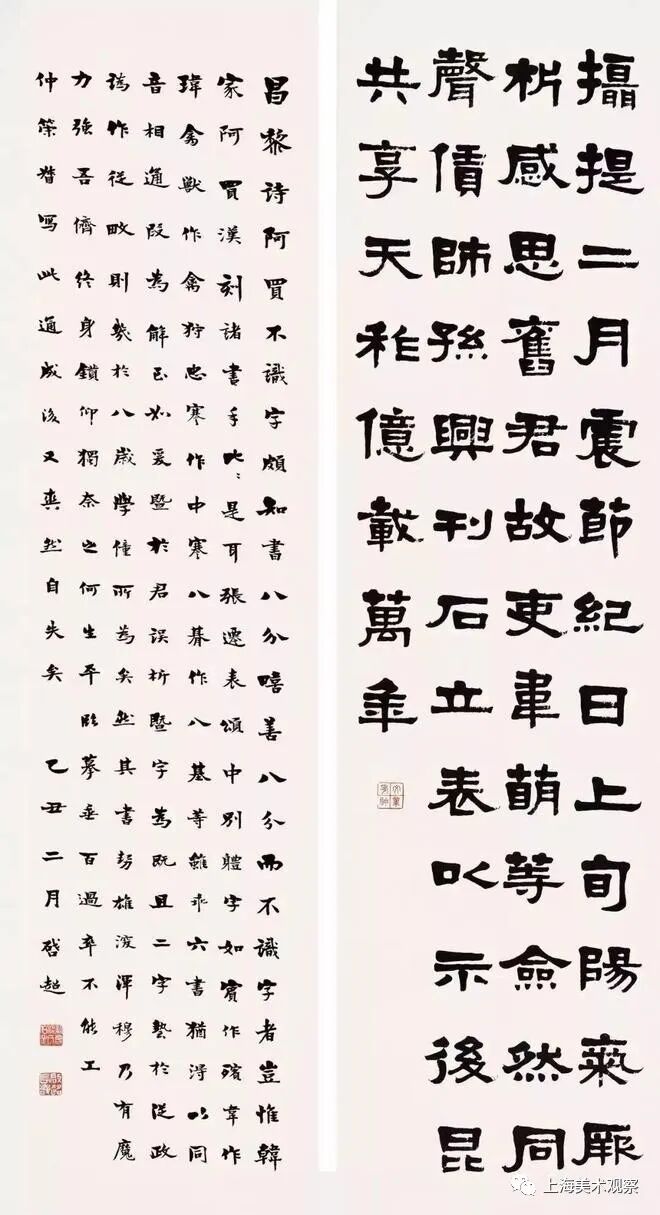 攝提二月震節紀日上旬陽氣厥
析感思舊君故吏韋萌等僉然同
聲賃師孫興刊石立表以示後昆
共享天祚億載萬年
昌黎詩阿買不識字頗知書八分嘻善八分而不識字者豈惟韓
家阿買漢刻諸書手比比是耳張遷表頌中別體字如賓作殯韋作
瑋禽獸作禽狩忠寒作中寒八朞作八基等雖乖六書猶得以同
音相通叚為解已如爰暨於君誤析暨字為既且二字蓺於從政
譌作從畋則幾於八歲學僮所為矣然其書勢雄渾穆乃有魔
力強吾儕終身鑽仰獨奈之何生平臨摹垂百過卒不能工
仲策督寫此通成後又爽然自失矣 乙丑二月啓超
上海美术观察